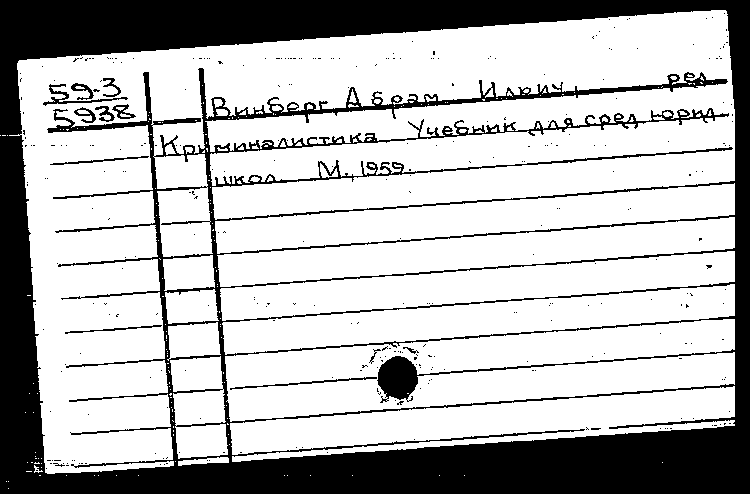 59.3
5938
Винберг, Абрам Ильич, ред.
Криминалистика Учебник для сред юрид
школ. М., 1959.